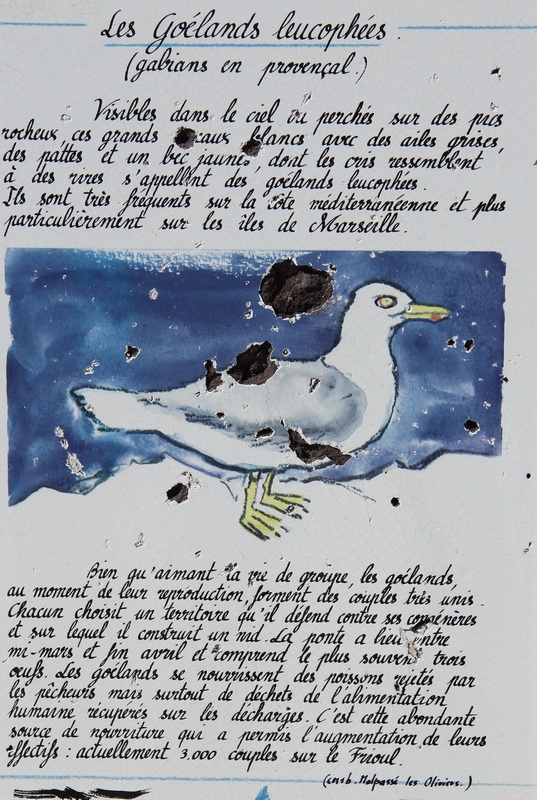 Les Goélands leucophées.
(gabians en provençal.)
Visibles dans le ciel ou perchés sur des pics
rocheux, ces grands blancs avec des ailes grises,
des pattes et un bec jaunes, dont les cris ressemblent
à des rires s'appellent des goélands leucophées.
Ils sont très fréquents sur la côte méditerranéenne et plus
particulièrement sur les îles de Marseille.
Bien qu'aimant la vie de groupe, les goélands,
au moment de leur reproduction, forment des couples très unis.
Chacun choisit un territoire qu'il défend contre ses congénères
et sur lequel il construit un nid. La ponte a lieu entre
mi-mars et fin avril et comprend le plus souvent trois
œufs. Les goélands se nourrissent des poissons rejetés par
les pêcheurs mais surtout de déchets de l'alimentation
humaine récupérés sur les décharges. C'est cette abondante
source de nourriture qui a permis l'augmentation de leurs
effectifs : actuellement 3.000 couples sur le Frioul.
Malpassé les Oliviers.)